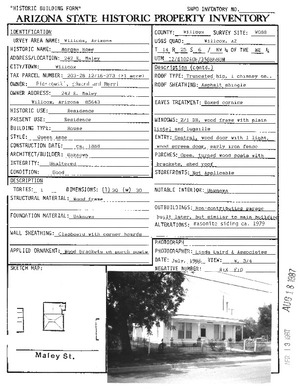 "HISTORIC BUILDING FORM"
SHPO INVENTORY NO.
ARIZONA STATE HISTORIC PROPERTY INVENTORY
IDENTIFICATION
SURVEY AREA NAME: Willcox, Arizona
HISTORIC NAME: Morgan Home
ADDRESS/LOCATION: 247 E. Maley
CITY/TOWN: Willcox
TAX PARCEL NUMBER:
OWNER:
OWNER ADDRESS: 247 E. Maley
Willcox, Arizona 85643
HISTORIC USE: Residence
PRESENT USE: Residence
BUILDING TYPE: House
STYLE: Queen Anne
CONSTRUCTION DATE: ca.
ARCHITECT/BUILDER: Unknown
INTEGRITY: Unaltered
CONDITION: Good
DESCRIPTION
STORIES: 1 DIMENSIONS: (l) 50 (w) 30
STRUCTURAL MATERIAL: Wood frame
FOUNDATION MATERIAL: Unknown
WALL SHEATHING: Clapboard with corner boards
APPLIED ORNAMENT: Wood brackets on porch
SKETCH MAP:
Maley St.
COUNTY: SURVEY SITE:
USGS QUAD: Willcox, AZ
DESCRIPTION (contd.)
ROOF TYPE: Truncated hip,
ROOF SHEATHING: Asphalt shingle
EAVES TREATMENT: Boxed cornice
WINDOWS: 2/1 DH, wood frame with plain
ENTRY: Central, wood door with 1 light,
wood screen door,
PORCHES: Open, turned wood posts with
brackets, shed roof
STOREFRONTS: Not Applicable
NOTABLE INTERIOR: Unknown
OUTBUILDINGS: Non-contributing garage
built later, but similar to main building
ALTERATIONS: siding ca. 1979
PHOTOGRAPH
PHOTOGRAPHER: Linda Laird & Associates
DATE: July, 1986 VIEW:
NEGATIVE NUMBER:
AUG 18 1987